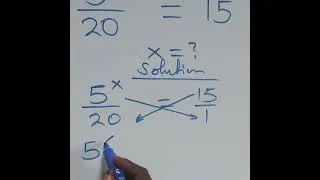 /20 = 15
x = ?
Solution
5^x/20 = 15/1
5